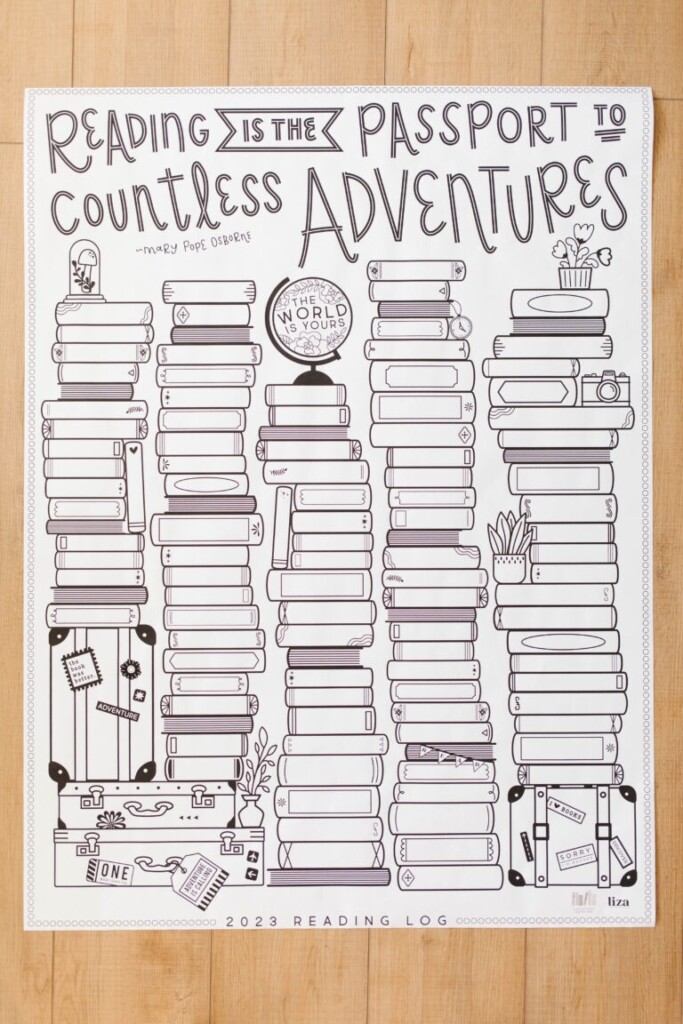 READING IS THE PASSPORT TO
COUNTLESS ADVENTURES
~MARY POPE OSBORNE
THE
WORLD
IS YOURS
the
book
was
better.
ADVENTURE
I ♥ BOOKS
SORRY
ONE
ADVENTURE
IS CALLING
liza
2023 READING LOG